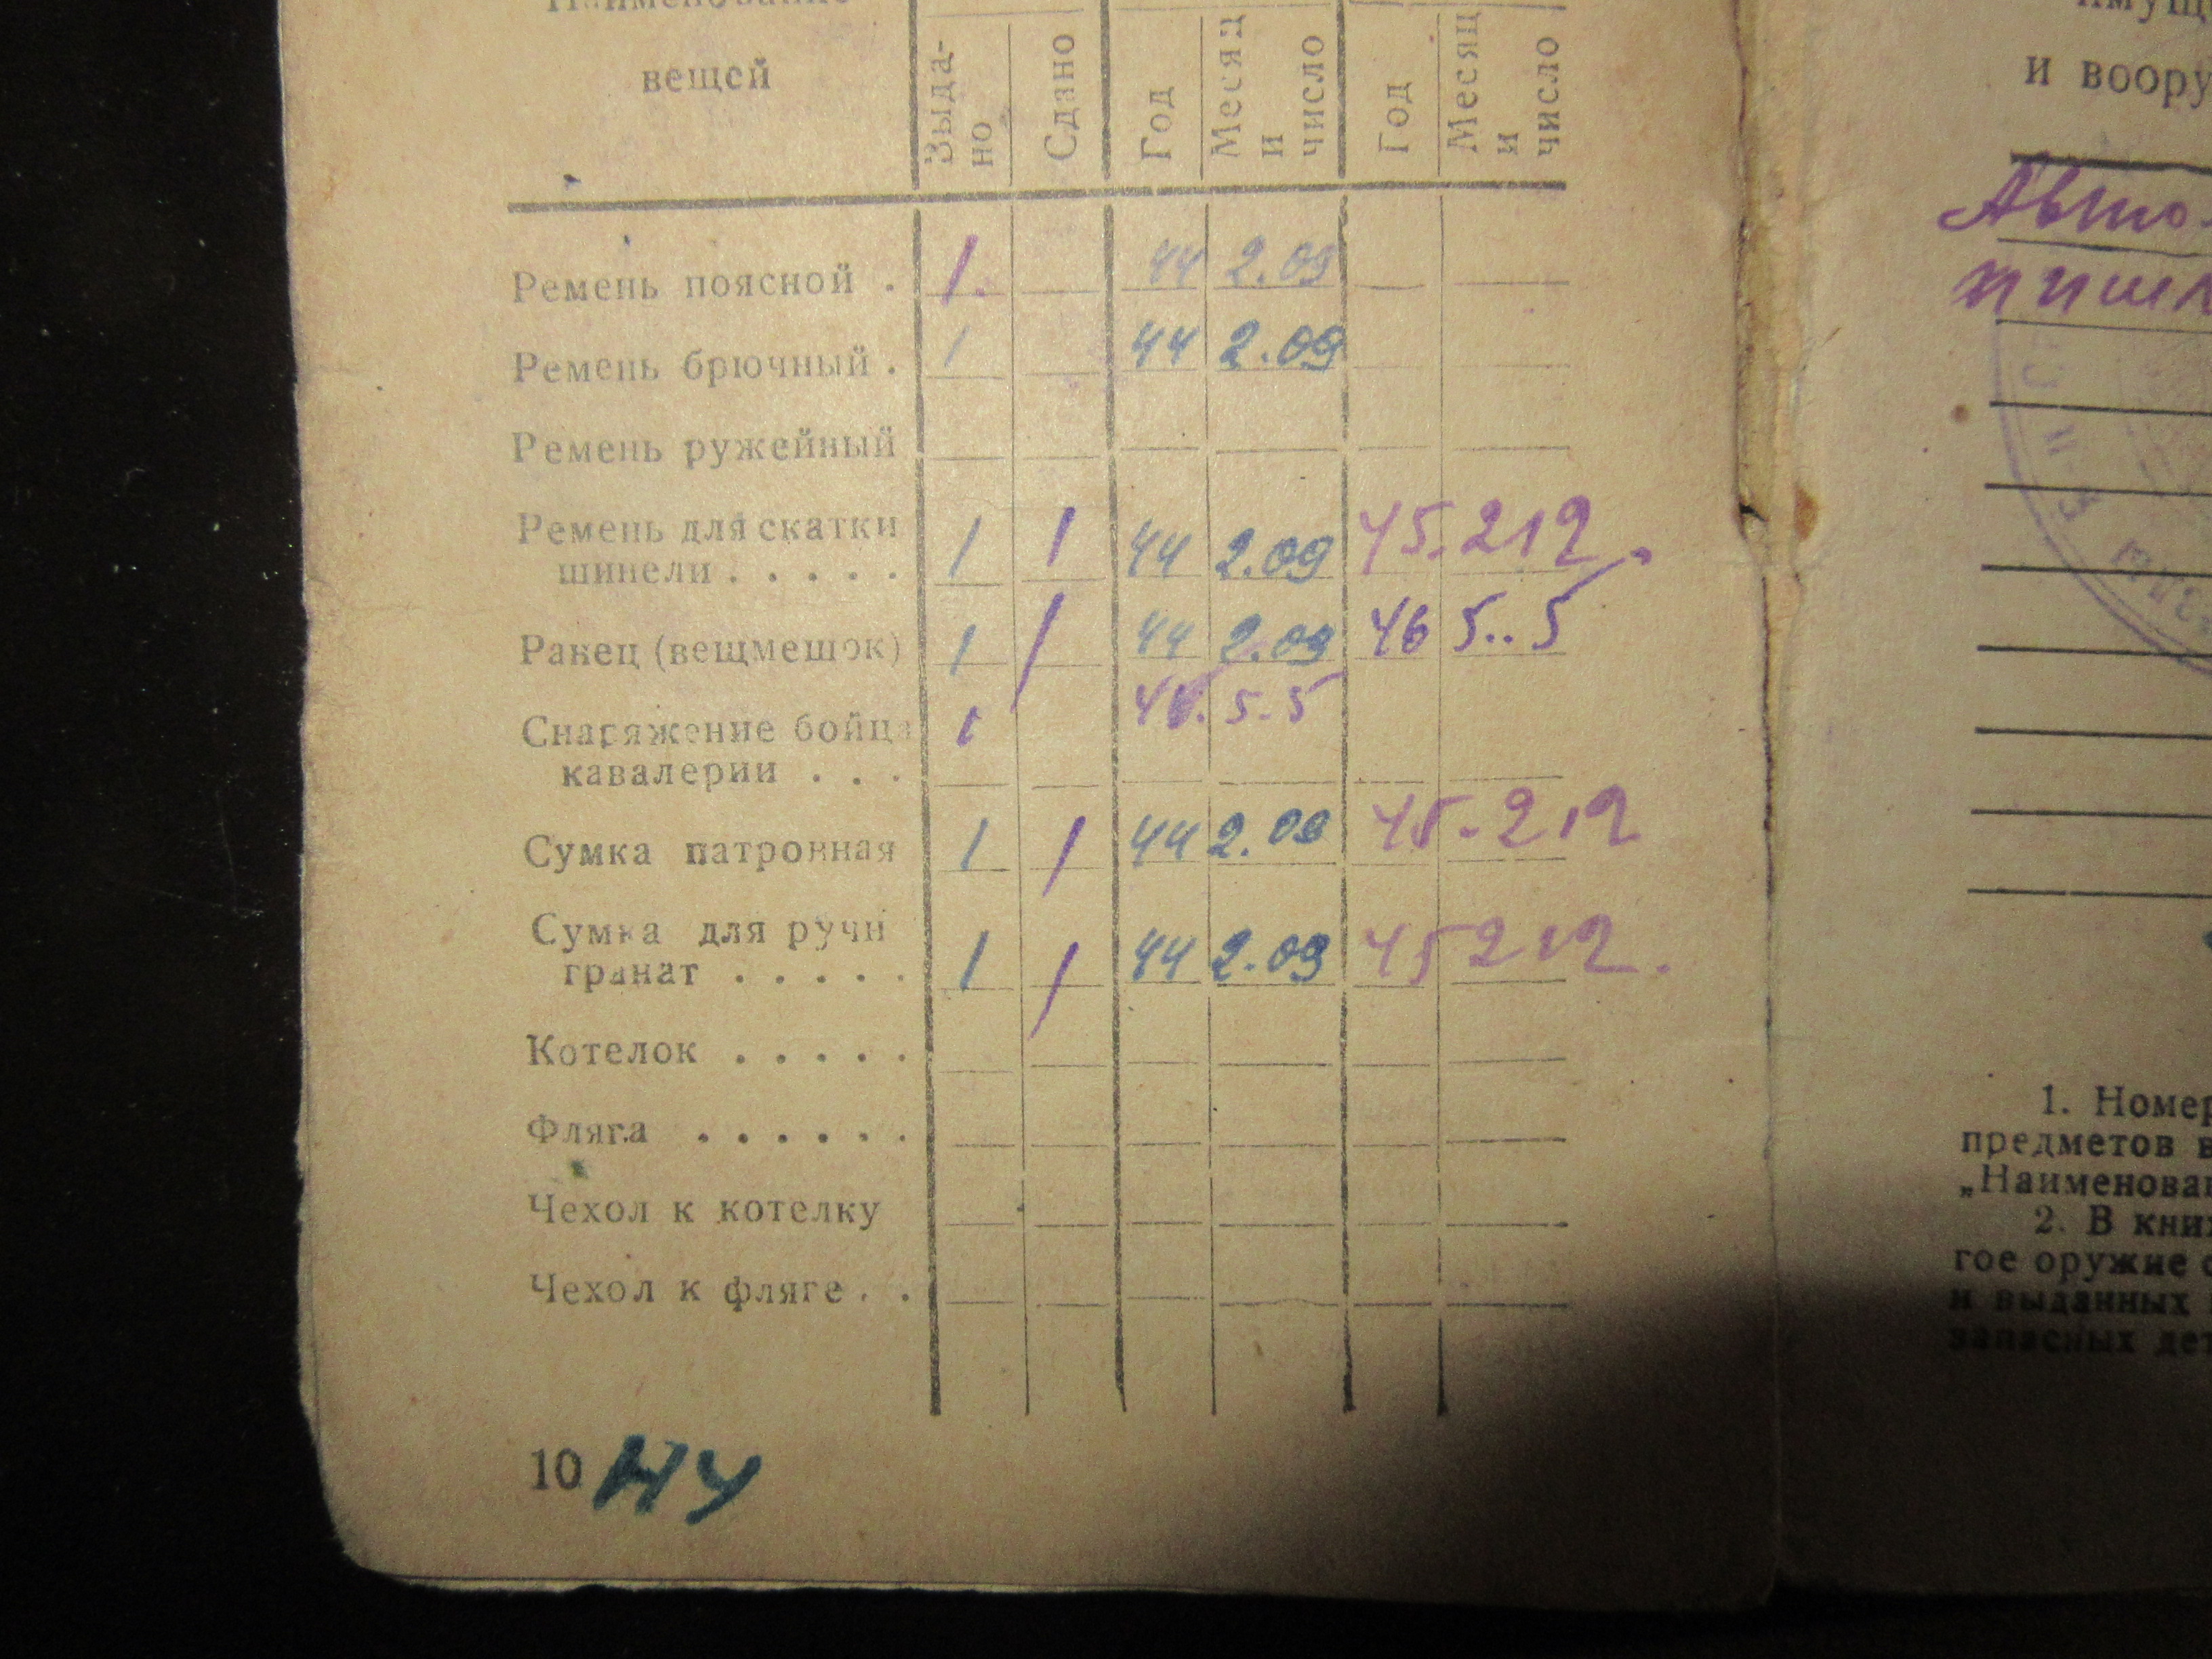 вещей
Выда-
но
Сдано
Год
Месяц
и
число
Год
Месяц
и
число
Ремень поясной . 1. 44 2.09
Ремень брючный . 1 44 2.09
Ремень ружейный
Ремень для скатки
шинели . . . . . 1 1 44 2.09 45. 212
Ранец (вещмешок) 1 1 44 2.09 46 5..5
1 46. 5-5
Снаряжение бойца
кавалерии . . .
Сумка патронная 1 1 44 2.09 45-212
Сумка для ручн
гранат . . . . . 1 1 44 2.09 45 212.
Котелок . . . . .
Фляга . . . . . .
Чехол к котелку
Чехол к фляге . .
10
и воору
Авто
1. Номер
предметов в
„Наименован
2. В кни
гое оружие
и выданных
запасных дет